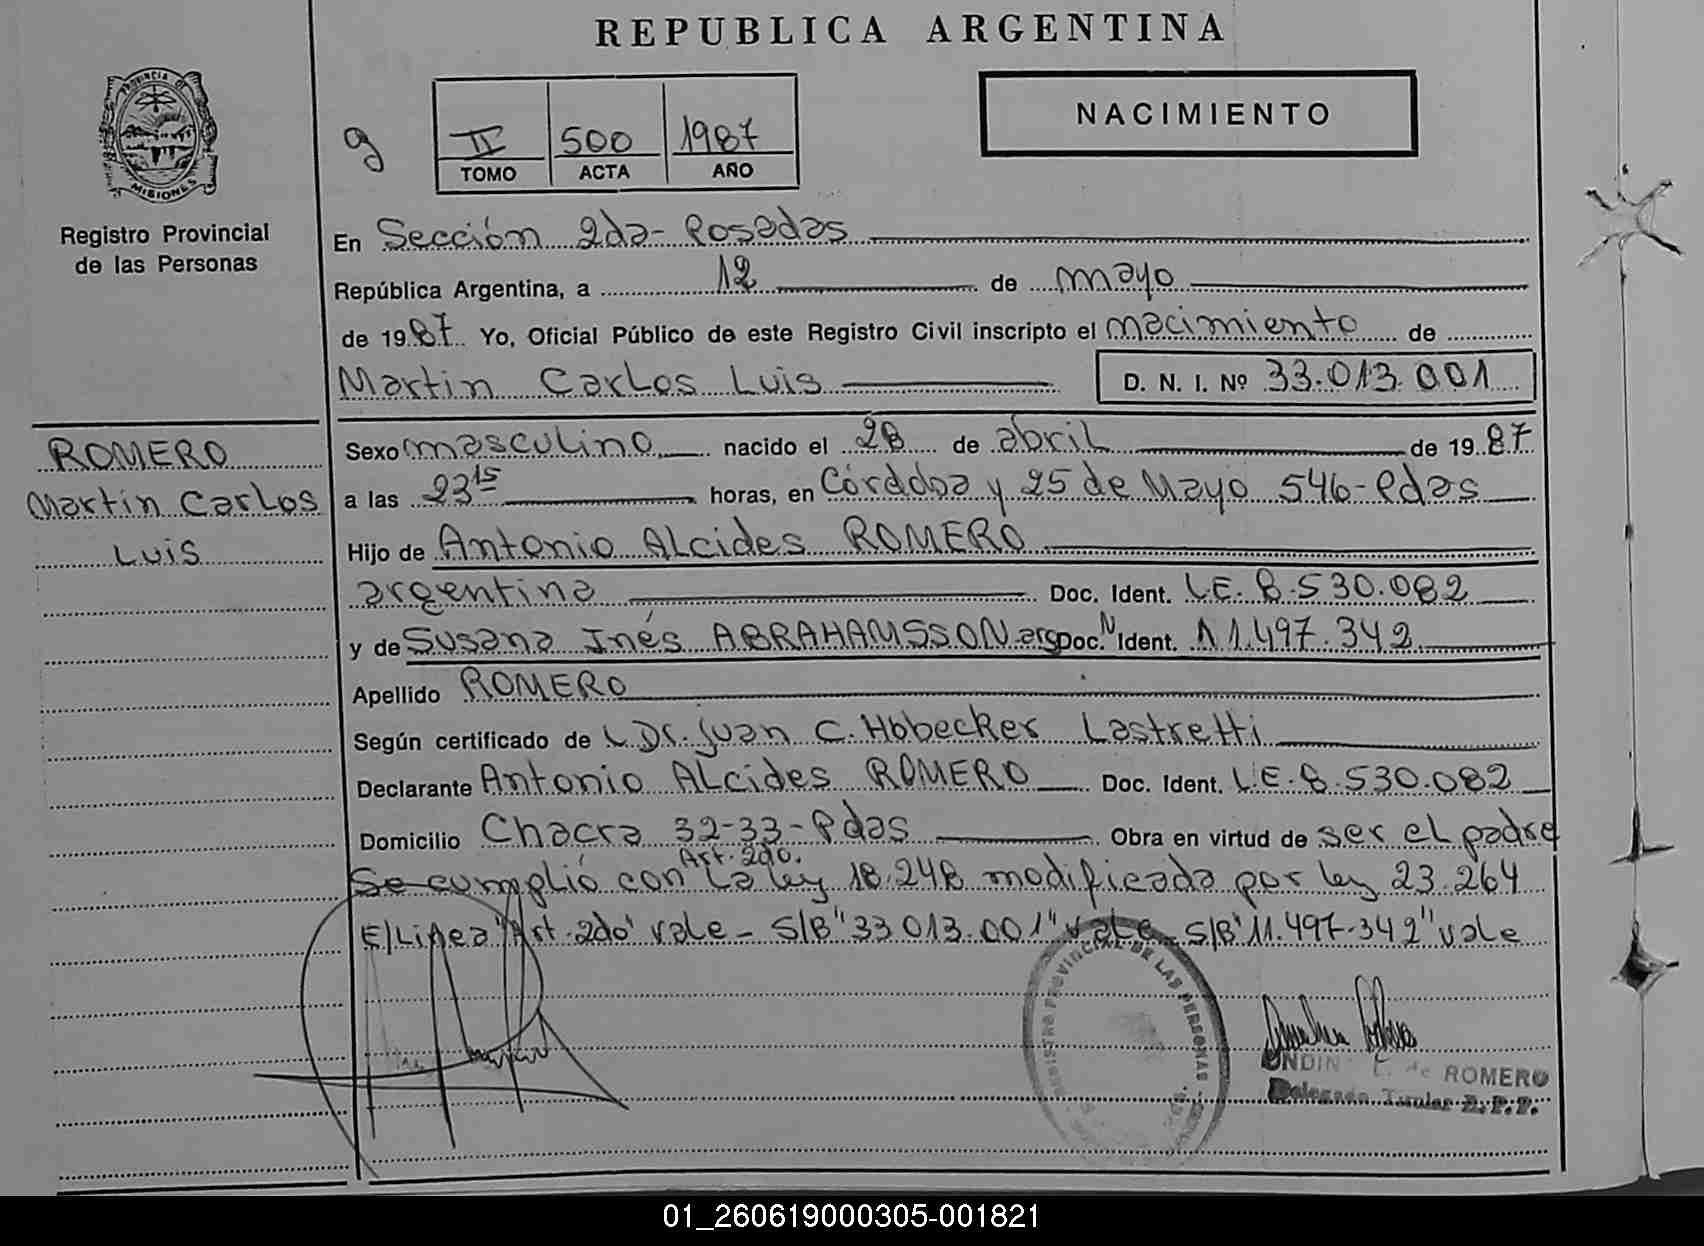 REPUBLICA ARGENTINA
PROVINCIA DE
MISIONES
Registro Provincial
de las Personas
g
II 500 1987
TOMO ACTA AÑO
NACIMIENTO
En Sección 2da- Posadas
República Argentina, a 12 de mayo
de 1987 Yo, Oficial Público de este Registro Civil inscripto el nacimiento de
Martin Carlos Luis D. N. I. Nº 33.013.001
ROMERO
Martin Carlos
Luis
Sexo masculino nacido el 28 de abril de 1987
a las 23 15 horas, en Córdoba y 25 de Mayo 546-Pdas
Hijo de Antonio Alcides ROMERO
argentina Doc. Ident. L.E. 8.530.082
y de Susana Inés ABRAHAMSSON arg Doc. N Ident. 11.497.342
Apellido ROMERO
Según certificado de L Dr. Juan C. Hobecker Lastretti
Declarante Antonio Alcides ROMERO Doc. Ident. L.E. 8.530.082
Domicilio Chacra 32-33-Pdas Obra en virtud de ser el padre
Art. 2do.
Se cumplió con La ley 18.248 modificada por ley 23.264
E/Linea "Art. 2do" vale - S/B "33 013.001" vale - S/B "11.497.342" vale
REGISTRO PROVINCIAL DE LAS PERSONAS
de ROMERO
Delegada Titular R.P.P.
01_260619000305-001821